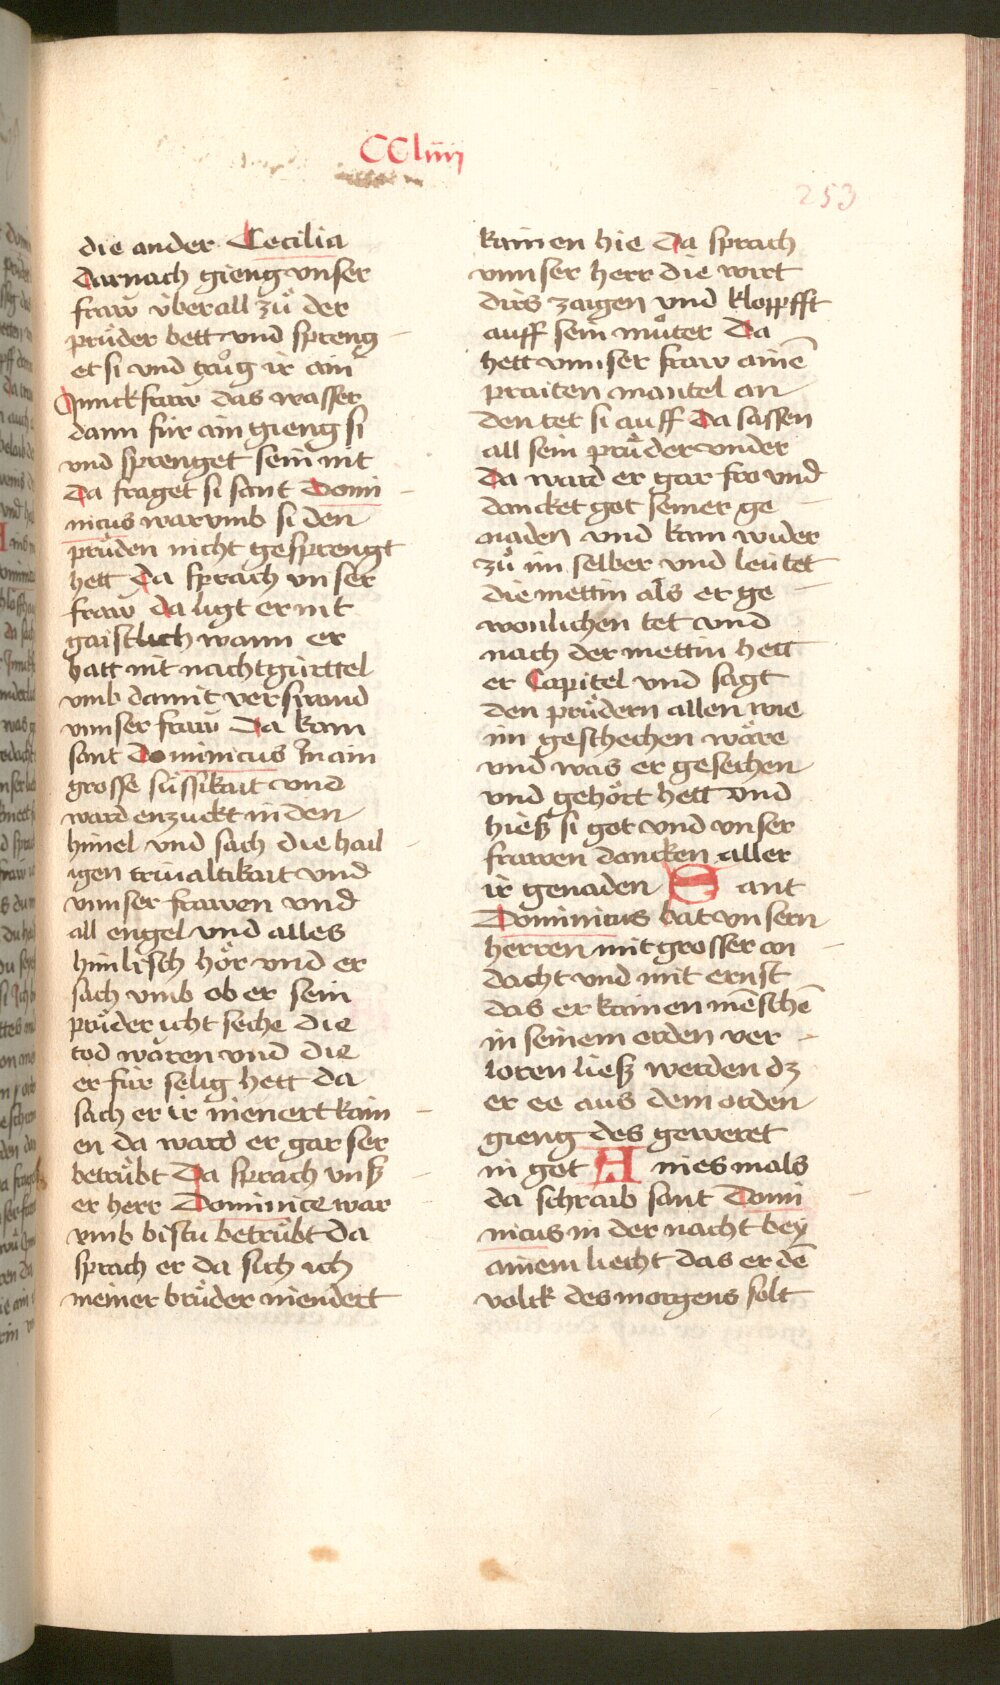 CCliiij
253
die ander Cecilia
Darnach gieng vnser
fraw v̈berall zů der
prüder bett vnd spreng
et si vnd trůg ir ain
Junckfraw das wasser
dann für ain gieng si
vnd sprenget sein nit
Da fraget si sant Domi
nicus warvmb si den
prüden nicht gesprengt
hett Da sprach vnser
fraw da ligt er nit
gaistlich wann er
hatt nit nachtgürttel
vmb damit verswand
vnnser fraw Da kam
sant Dominicus In ain
grosse süssikait vnd
ward enzuckt in den
himel vnd sach die hail
igen triualtikait vnd
vnnser frawen vnd
all engel vnd alles
himlisch hör vnd er
sach vmb ob er sein
prüder icht seche die
tod wären vnd die
er für selig hett da
sach er ir nienert kain
en da ward er gar ser
betrübt Da sprach vnß
er herr Dominice war
vmb bistu betrübt Da
sprach er da sich ich
meiner brüder niendert
kainen hie Da sprach
vnnser herr die wirt
dirs zaigen vnd klopfft
auff sein můter Da
hett vnnser fraw ainē
praiten mantel an
den tet si auff Da sassen
all sein prüder vnder
Da ward er gar fro vnd
dancket got seiner ge
naden vnd kam wider
zů im selber vnd leütet
die mettin als er ge
wonlichen tet vnd
nach der mettin hett
er Capitel vnd sagt
den prüdern allen wie
im geschechen wäre
vnd was er gesechen
vnd gehört hett vnd
hieß si got vnd vnser
frawen dancken aller
ir genaden Sant
Dominicus bat vnsern
herren mit grosser an
dacht vnd mit ernst
das er kainen mēschē
in seinem orden ver
loren ließ werden dz
er ee aus dem orden
gieng des geweret
in got Ainesmals
da schraib sant Domi
nicus in der nacht bey
ainem liecht das er dē
volck des morgens solt